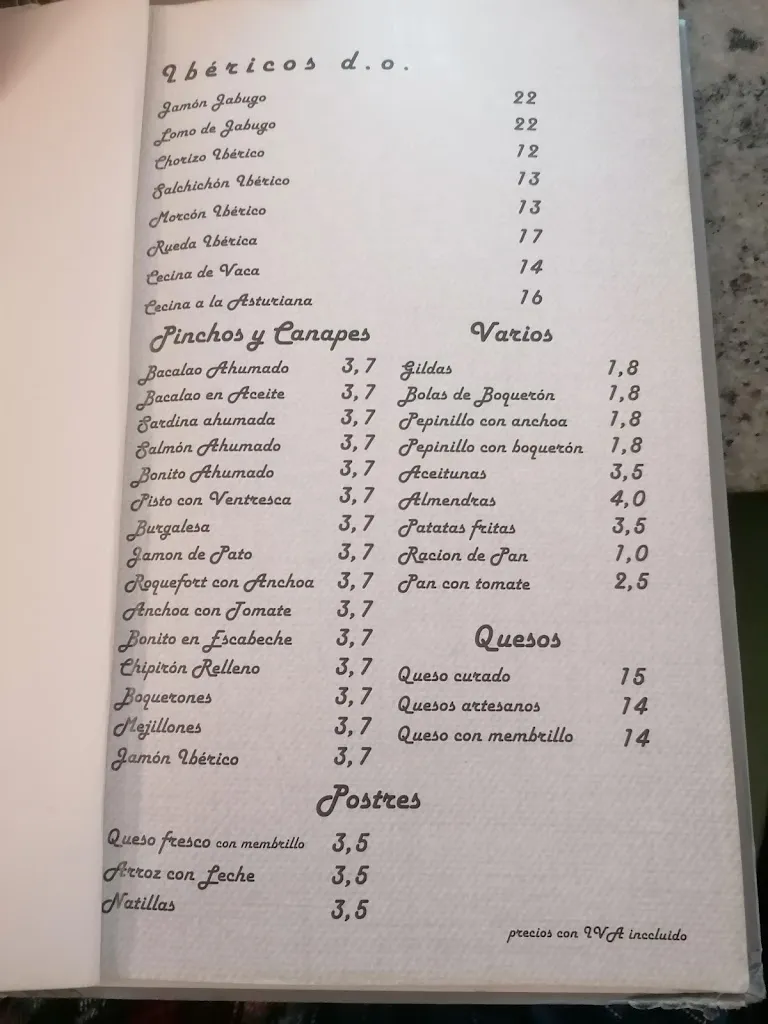 Ibéricos d.o.
Jamón Jabugo 22
Lomo de Jabugo 22
Chorizo Ibérico 12
Salchichón Ibérico 13
Morcón Ibérico 13
Rueda Ibérica 17
Cecina de Vaca 14
Cecina a la Asturiana 16
Pinchos y Canapes
Bacalao Ahumado 3,7
Bacalao en Aceite 3,7
Sardina ahumada 3,7
Salmón Ahumado 3,7
Bonito Ahumado 3,7
Pisto con Ventresca 3,7
Burgalesa 3,7
Jamon de Pato 3,7
Roquefort con Anchoa 3,7
Anchoa con Tomate 3,7
Bonito en Escabeche 3,7
Chipirón Relleno 3,7
Boquerones 3,7
Mejillones 3,7
Jamón Ibérico 3,7
Varios
Gildas 1,8
Bolas de Boquerón 1,8
Pepinillo con anchoa 1,8
Pepinillo con boquerón 1,8
Aceitunas 3,5
Almendras 4,0
Patatas fritas 3,5
Racion de Pan 1,0
Pan con tomate 2,5
Quesos
Queso curado 15
Quesos artesanos 14
Queso con membrillo 14
Postres
Queso fresco con membrillo 3,5
Arroz con Leche 3,5
Natillas 3,5
precios con IVA inccluido